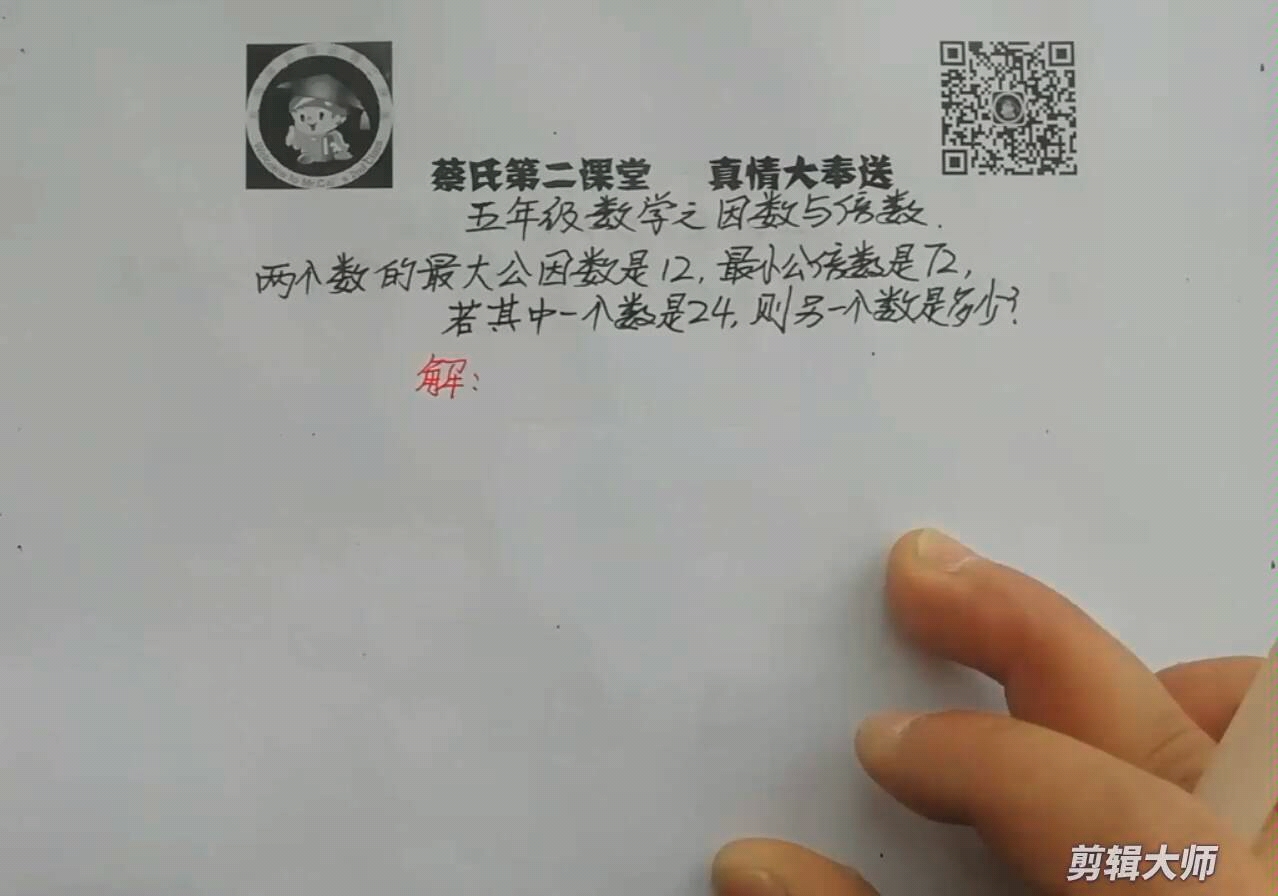 蔡氏第二课堂 真情大奉送
五年级数学之因数与倍数.
两个数的最大公因数是12,最小公倍数是72,
若其中一个数是24,则另一个数是多少?
解:
剪辑大师